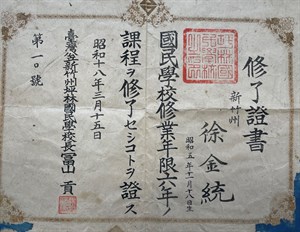 修了證書
新竹州
徐金統
昭和五年十一月十八日生
國民學校修業年限六年ノ
課程ヲ修了セシコトヲ證ス
昭和十八年三月十五日
臺灣公立新竹州坪林國民學校長冨山貢
第一〇號